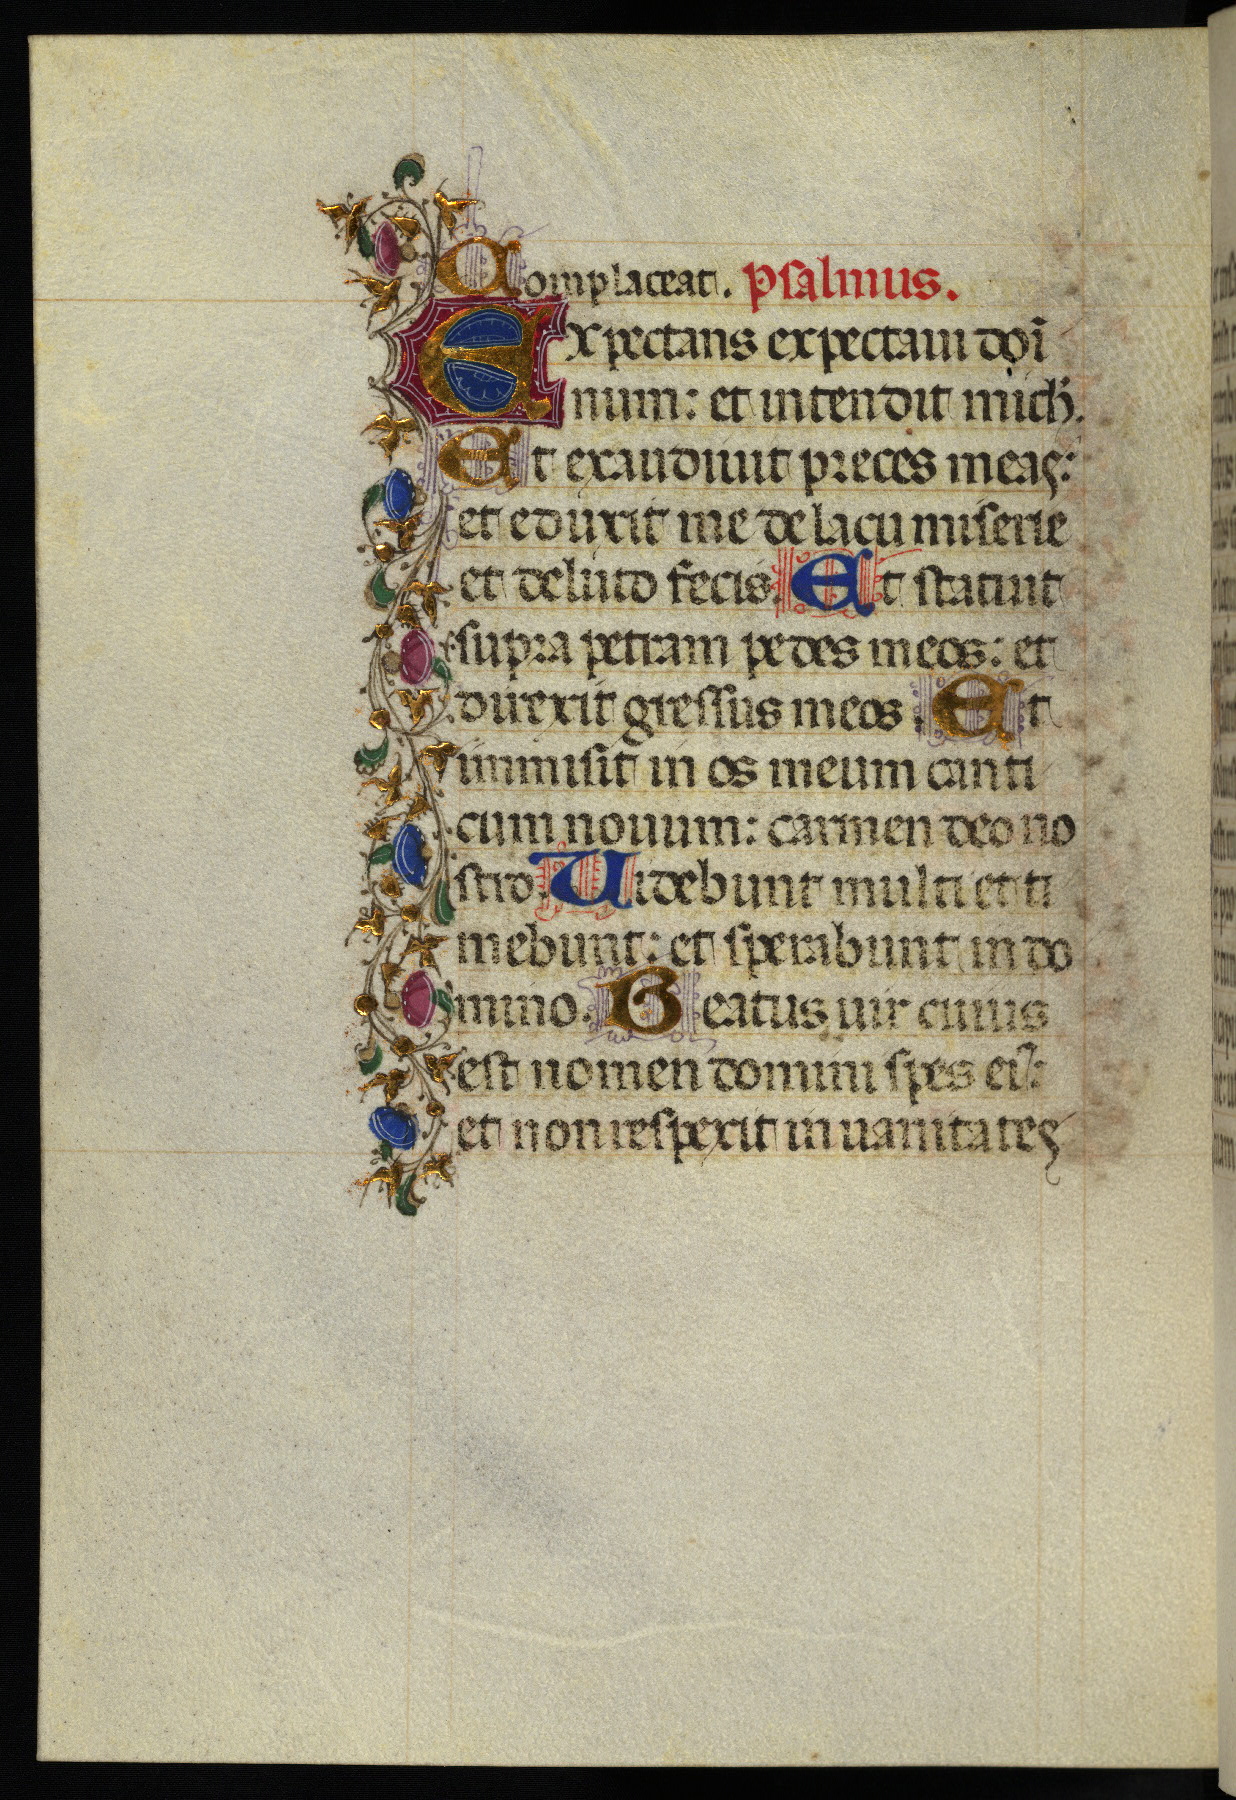 Complaceat. Psalmus.
Expectans expectaui doī
num: et intendit mich̄.
Et exaudiuit preces meaς:
et eduxit me de lacu miserie
et de luto fecis. Et statuit
supra petram pedes meos: et
direxit gressus meos. Et
immisit in os meum canti
cum nouum: carmen deo no
stro. Uidebunt multi et ti
mebunt: et sperabunt in do
mino. Beatus uir cuius
est nomen domini spes ei᾿:
et non respexit in uanitateς